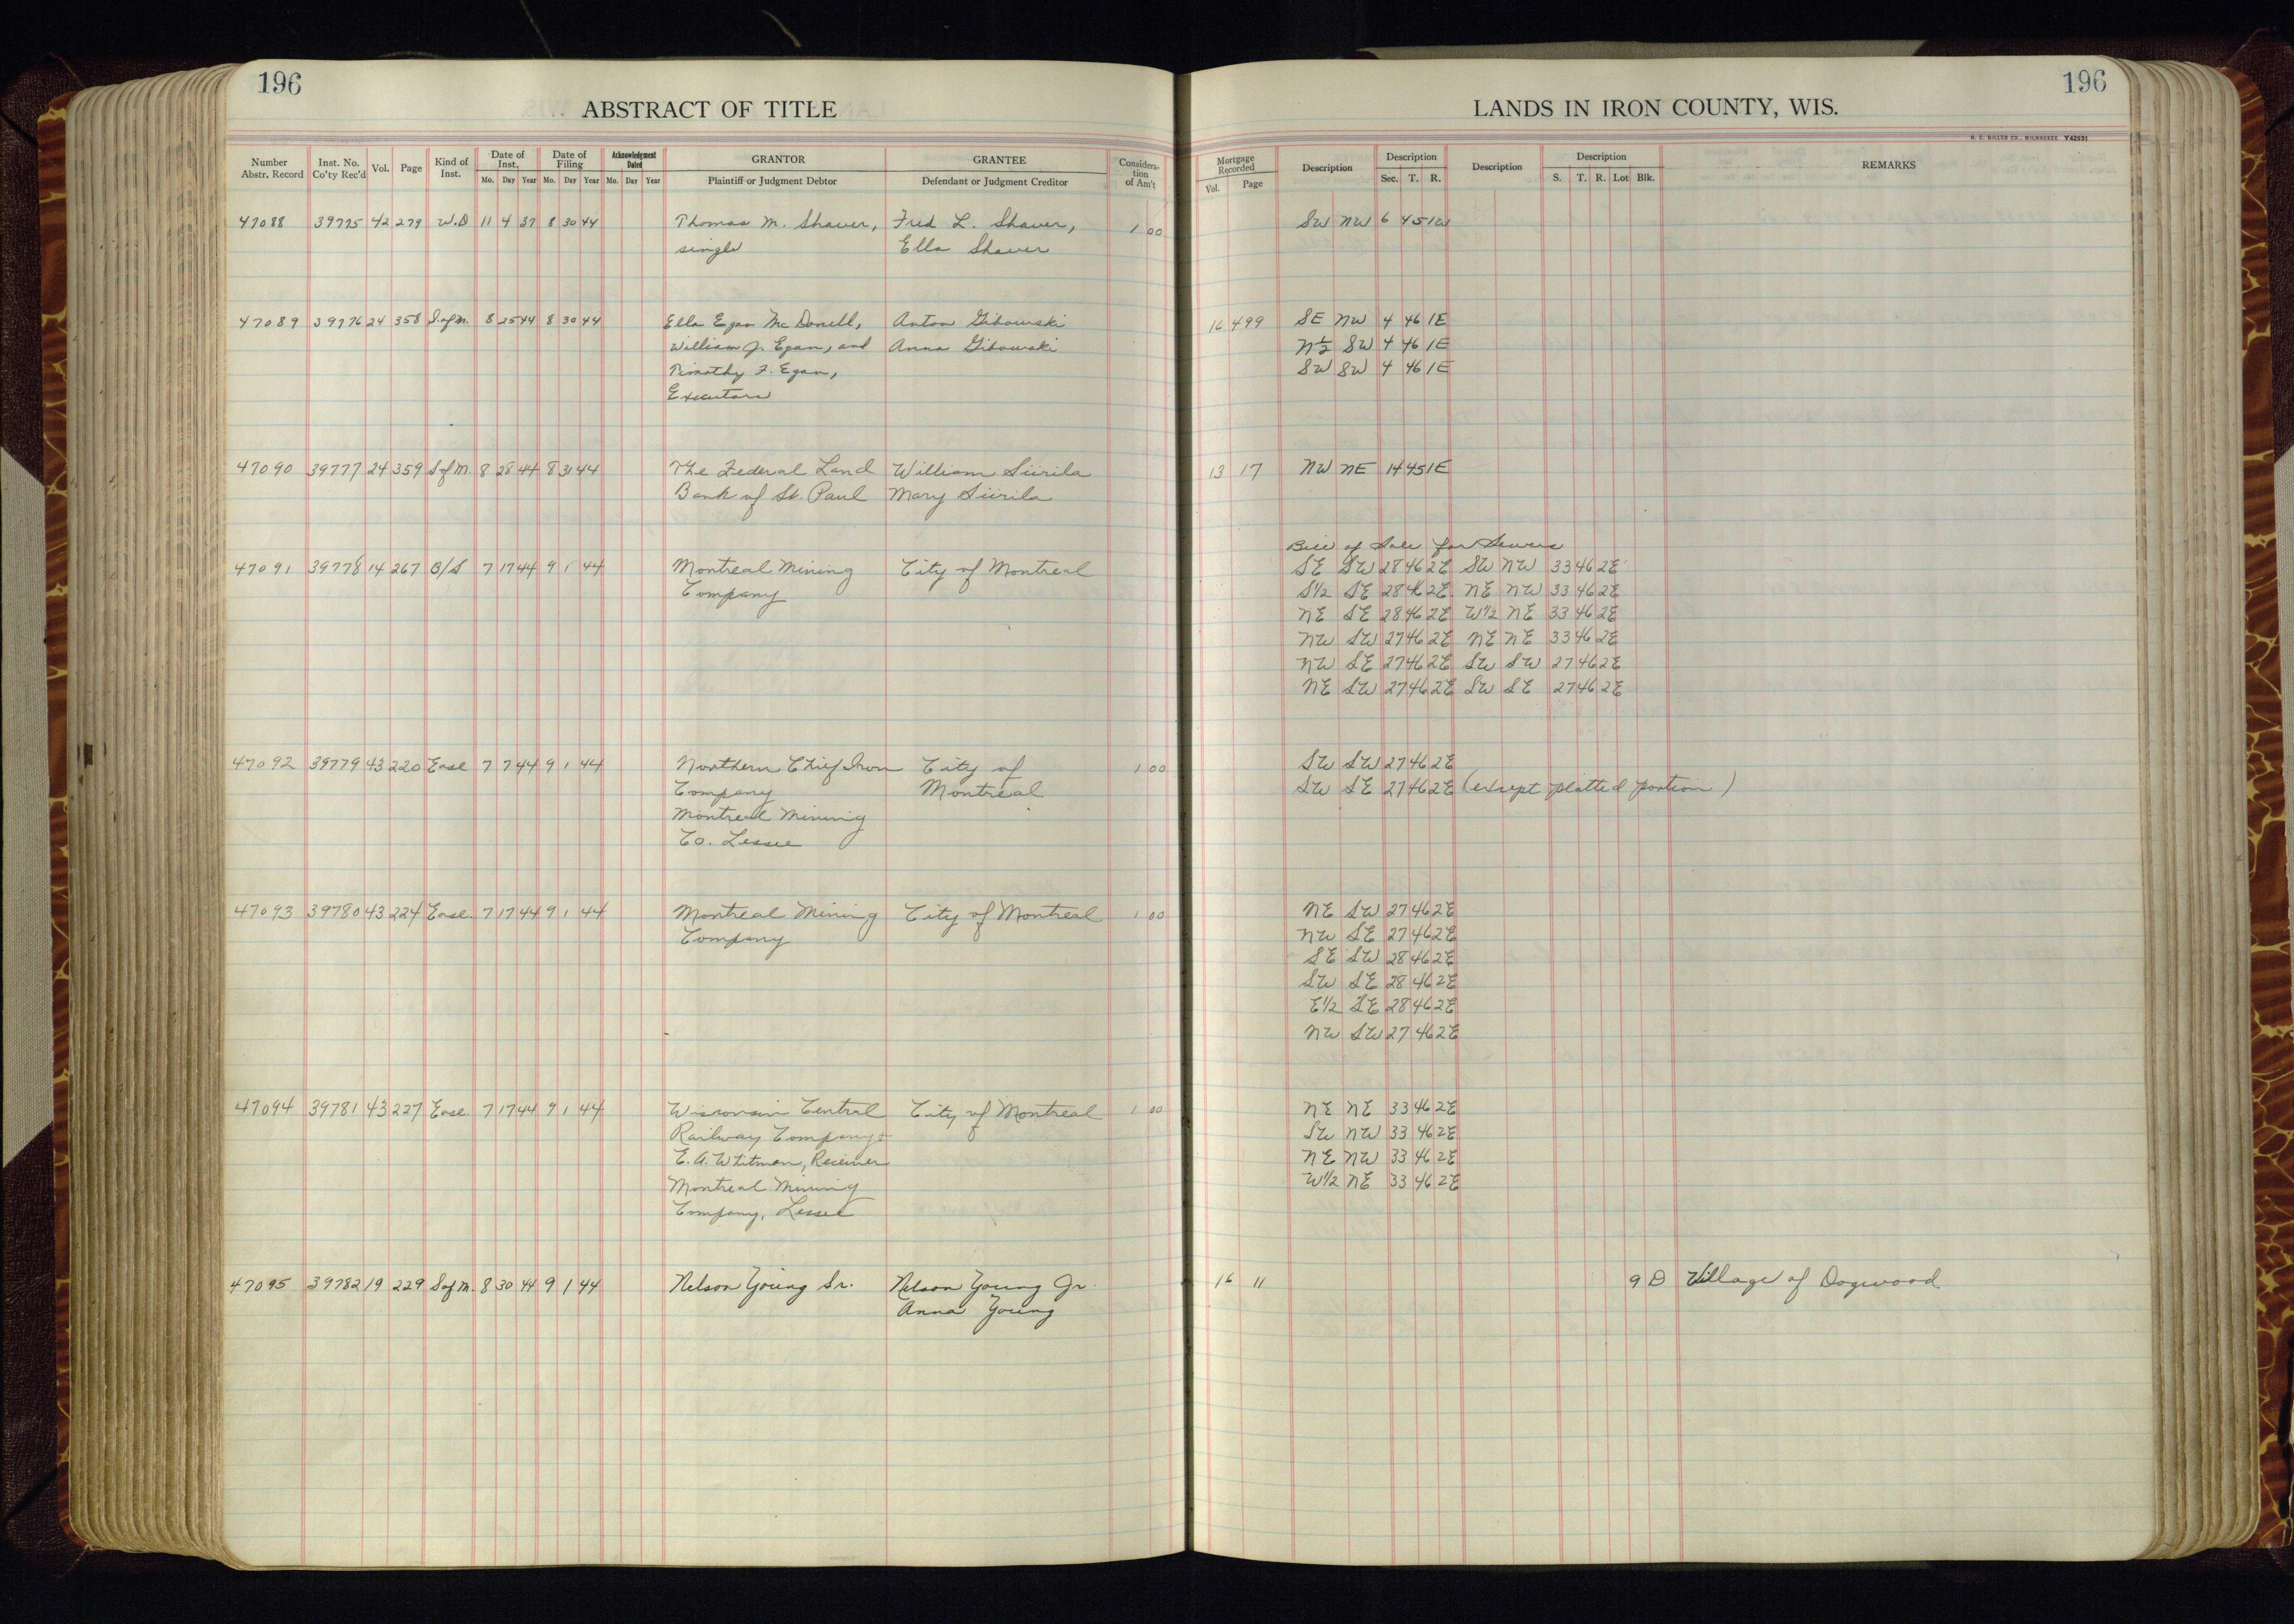 196
ABSTRACT OF TITLE
Number Abstr. Record Inst. No. Co'ty Rec'd Vol. Page Kind of Inst. Date of Inst. Date of Filing Acknowledgment Dated GRANTOR GRANTEE Considera-tion of Am't
Mo. Day Year Mo. Day Year Mo. Day Year Plaintiff or Judgment Debtor Defendant or Judgment Creditor
47088 39775 42 279 W.D 11 4 37 8 30 44 Thomas M. Shaver, Fred L. Shaver, 1 00
single Ella Shaver
47089 39776 24 358 S.of M. 8 25 44 8 30 44 Ella Egan Mc Donell, Anton Gibowski
William J. Egan, and Anna Gibowski
Timothy F. Egan,
Executors
47090 39777 24 359 S of M. 8 28 44 8 31 44 The Federal Land William Siirila
Bank of St. Paul Mary Siirila
47091 39778 14 267 B/S 7 17 44 9 1 44 Montreal Mining City of Montreal
Company
47092 39779 43 220 Ease 7 7 44 9 1 44 Northern Chief Iron City of 1 00
Company Montreal
Montreal Mining
Co. Lessee
47093 39780 43 224 Ease. 7 17 44 9 1 44 Montreal Mining City of Montreal 1 00
Company
47094 39781 43 227 Ease. 7 17 44 9 1 44 Wisconsin Central City of Montreal 1 00
Railway Company &
E. A. Whitman, Receiver
Montreal Mining
Company, Lessee
47095 39782 19 229 S of M. 8 30 44 9 1 44 Nelson Young Sr. Nelson Young Jr.
Anna Young
196
LANDS IN IRON COUNTY, WIS.
H. C. MILLER CO., MILWAUKEE Y42031
Mortgage Recorded Description Description Description Description REMARKS
Vol. Page Sec. T. R. S. T. R. Lot Blk.
SW NW 6 45 1W
16 499 SE NW 4 46 1E
N½ SW 4 46 1E
SW SW 4 46 1E
13 17 NW NE 14 45 1E
Bill of Sale for Sewers
SE SW 28 46 2E SW NW 33 46 2E
S1/2 SE 28 46 2E NE NW 33 46 2E
NE SE 28 46 2E W1/2 NE 33 46 2E
NW SW 27 46 2E NE NE 33 46 2E
NW SE 27 46 2E SW SW 27 46 2E
NE SW 27 46 2E SW SE 27 46 2E
SW SW 27 46 2E
SW SE 27 46 2E (except platted portion)
NE SW 27 46 2E
NW SE 27 46 2E
SE SW 28 46 2E
SW SE 28 46 2E
E1/2 SE 28 46 2E
NW SW 27 46 2E
NE NE 33 46 2E
SW NW 33 46 2E
NE NW 33 46 2E
W1/2 NE 33 46 2E
16 11 9 D Village of Dogwood